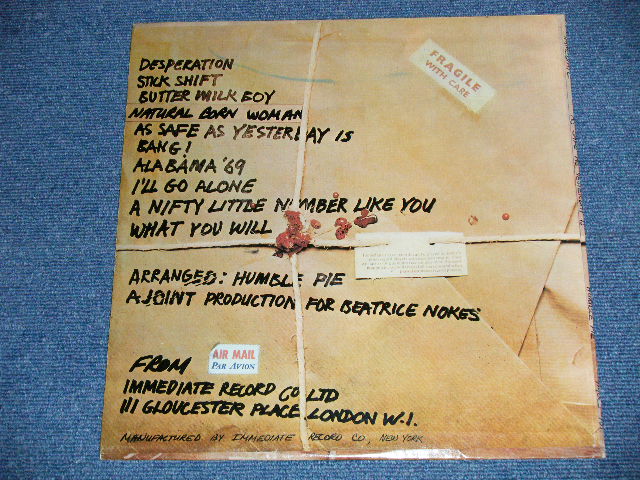 DESPERATION
STICK SHIFT
BUTTER MILK BOY
NATURAL BORN WOMAN
AS SAFE AS YESTERDAY IS
BANG!
ALABAMA '69
I'LL GO ALONE
A NIFTY LITTLE NUMBER LIKE YOU
WHAT YOU WILL
FRAGILE
WITH CARE
ARRANGED: HUMBLE PIE
A JOINT PRODUCTION FOR BEATRICE NOKES
FROM
AIR MAIL
PAR AVION
IMMEDIATE RECORD CO LTD
111 GLOUCESTER PLACE LONDON W.1.
MANUFACTURED BY IMMEDIATE RECORD CO, NEW YORK